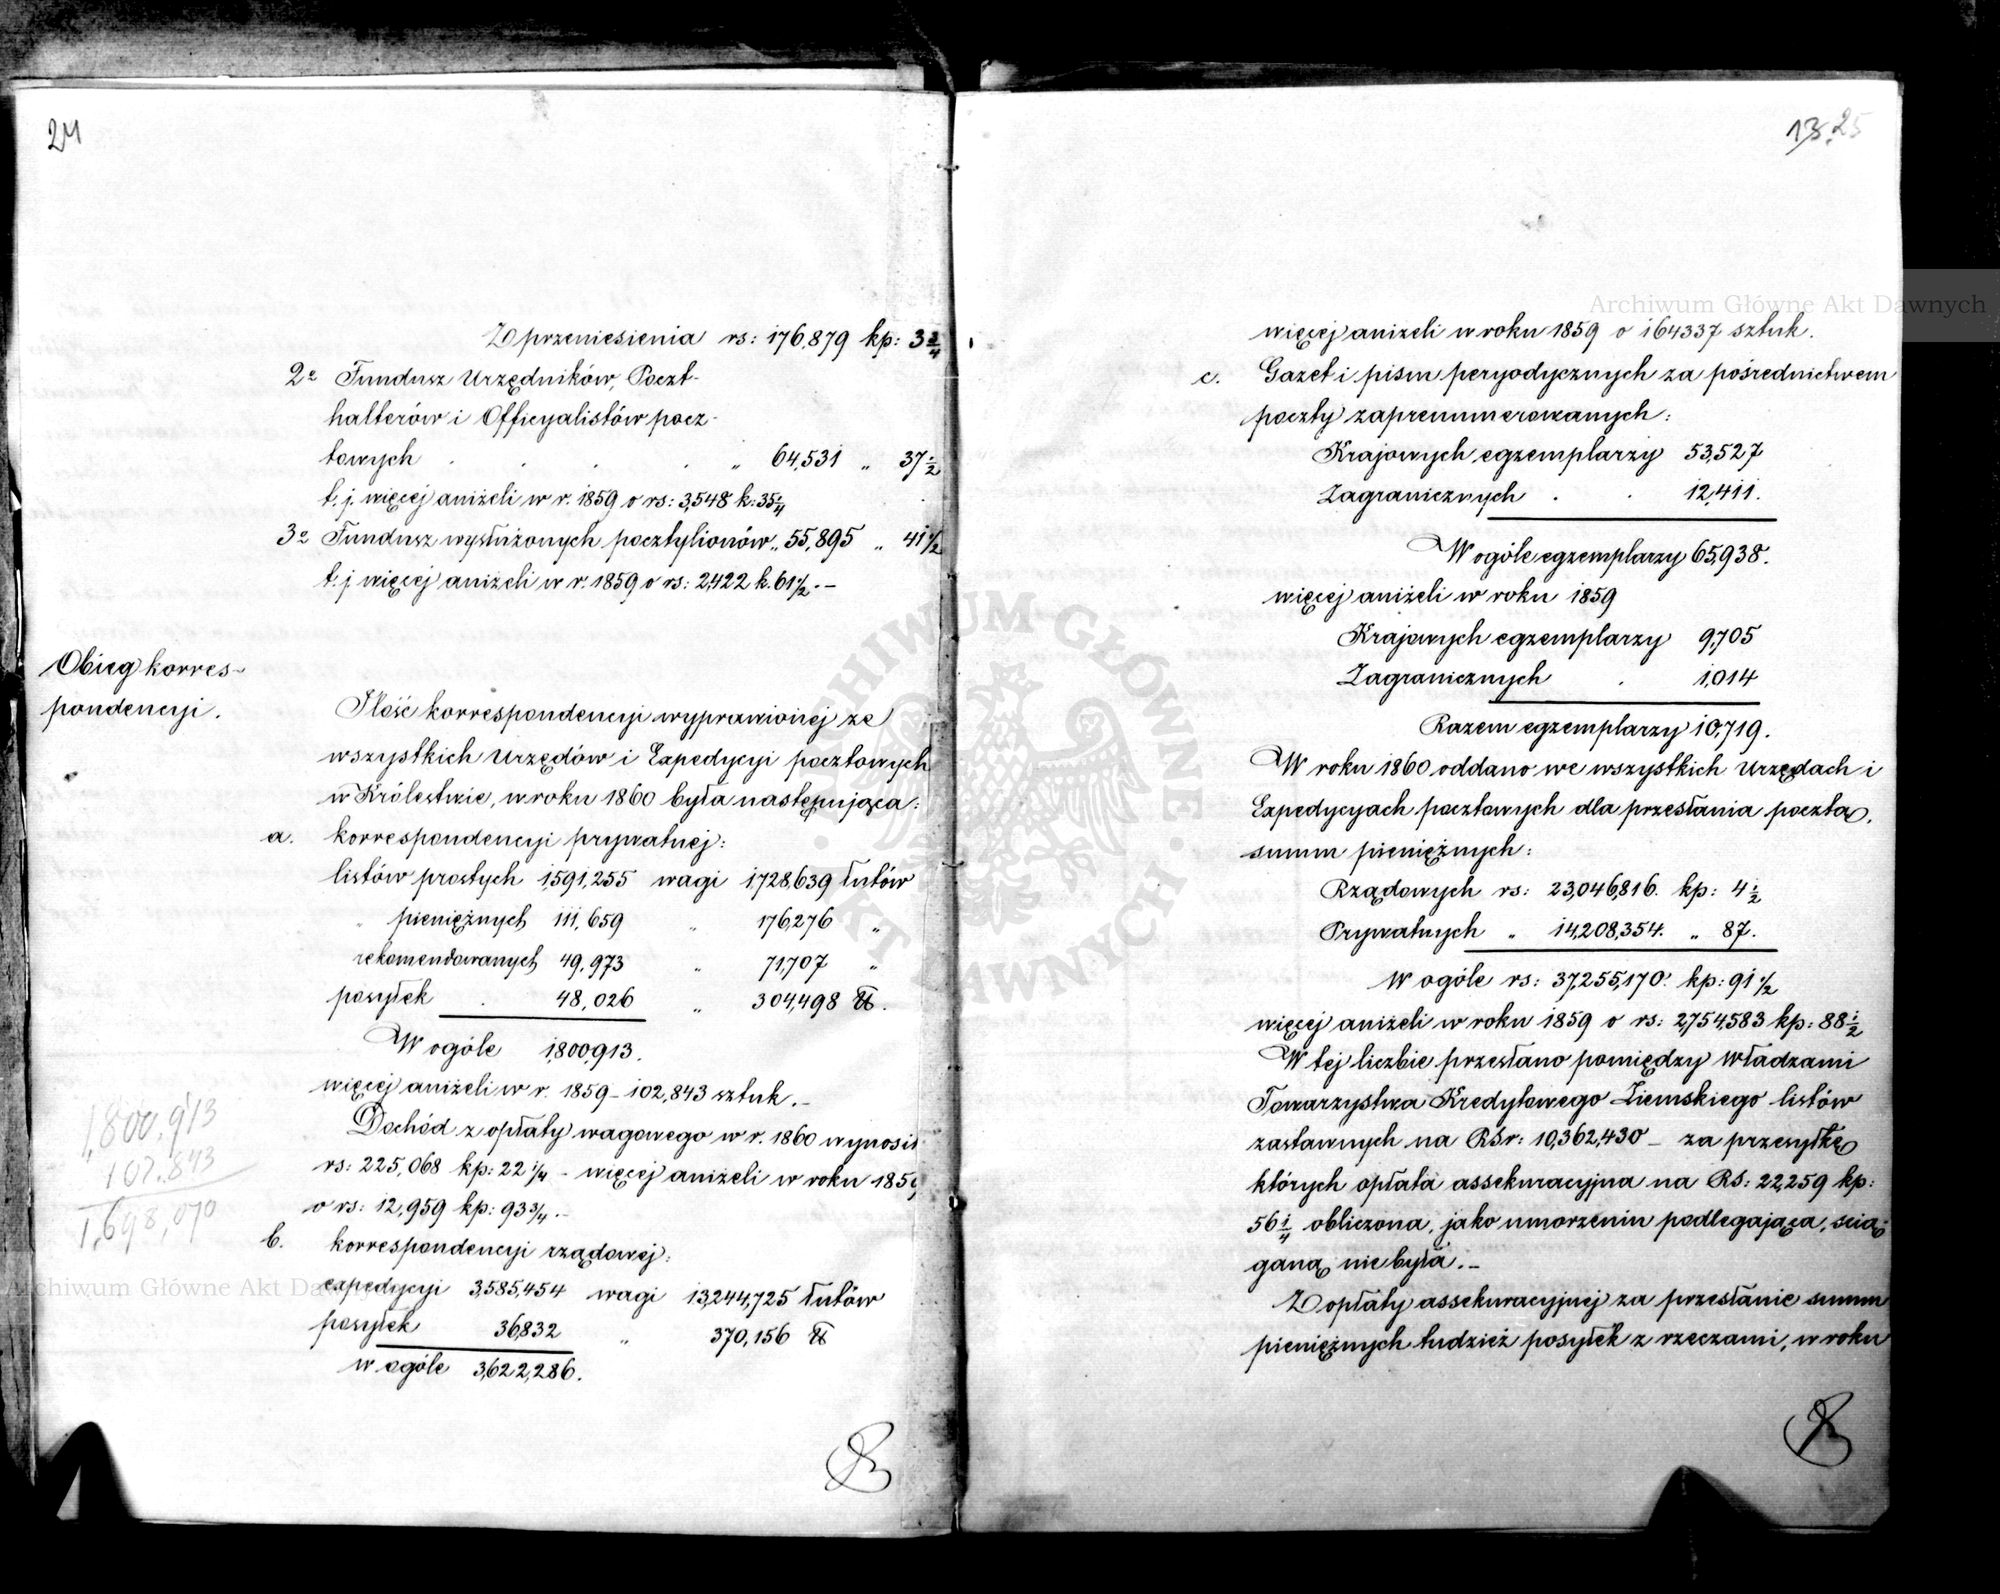 24
Z przeniesienia rs: 176,879 kp: 3 3/4
2e Fundusz Urzędników, Poczt-
halterów i Officyalistów pocz-
towych . . . . „ 64,531 „ 37 1/2
t. j. więcej aniżeli w r. 1859 o rs: 3,548 k: 35 1/4
3e Fundusz wysłużonych pocztylionów „ 55,895 „ 41 1/2
t. j. więcej aniżeli w r. 1859 o rs: 2,422 k. 61 1/2. –
Obieg korres-
pondencyi.
Ilość korrespondencyi wyprawionej ze
wszystkich Urzędów i Expedycyi pocztowych
w Królestwie, w roku 1860 była następująca:
a. korrespondencyi prywatnej:
listów prostych 1,591,255 wagi 1,728,639 łutów
„ pieniężnych 111,659 „ 176,276 „
rekomendowanych 49,973 „ 71,707 „
posyłek . 48,026 „ 304,498 ℔.
W ogóle 1,800,913.
więcej aniżeli w r. 1859 – 102,843 sztuk. –
Dochód z opłaty wagowego w r. 1860 wynosił
rs: 225,068 kp: 22 1/4 – więcej aniżeli w roku 1859
o rs: 12,959 kp: 93 3/4. –
b. korrespondencyi rządowej:
expedycyi 3,585,454 wagi 13,244,725 łutów
posyłek 36,832 „ 370,156 ℔
w ogóle 3,622,286.
1,800,913
102,843
1,698,070
13. 25
więcej aniżeli w roku 1859 o 164337 sztuk.
c. Gazet i pism peryodycznych za pośrednictwem
poczty zaprenumerowanych:
Krajowych egzemplarzy 53,527
Zagranicznych . . 12,411.
W ogóle egzemplarzy 65,938.
więcej aniżeli w roku 1859
Krajowych egzemplarzy 9,705
Zagranicznych . 1,014
Razem egzemplarzy 10,719.
W roku 1860 oddano we wszystkich Urzędach i
Expedycyach pocztowych dla przesłania pocztą,
summ pieniężnych:
Rządowych rs: 23,046,816. kp: 4 1/2
Prywatnych „ 14,208,354. „ 87.
W ogóle rs: 37,255,170. kp: 91 1/2
więcej aniżeli w roku 1859 o rs: 2,754,583 kp: 88 1/2
W tej liczbie przesłano pomiędzy Władzami
Towarzystwa Kredytowego Ziemskiego listów
zastawnych na RSr: 10,362,430 – za przesyłkę
których opłata assekuracyjna na RS: 22,259 kp:
56 1/4 obliczona, jako umorzeniu podlegająca, scią-
ganą nie była. –
Z opłaty assekuracyjnej za przesłanie summ
pieniężnych tudzież posyłek z rzeczami, w roku
Archiwum Główne Akt Dawnych
Archiwum Główne Akt Dawnych
ARCHIWUM GŁÓWNE AKT DAWNYCH